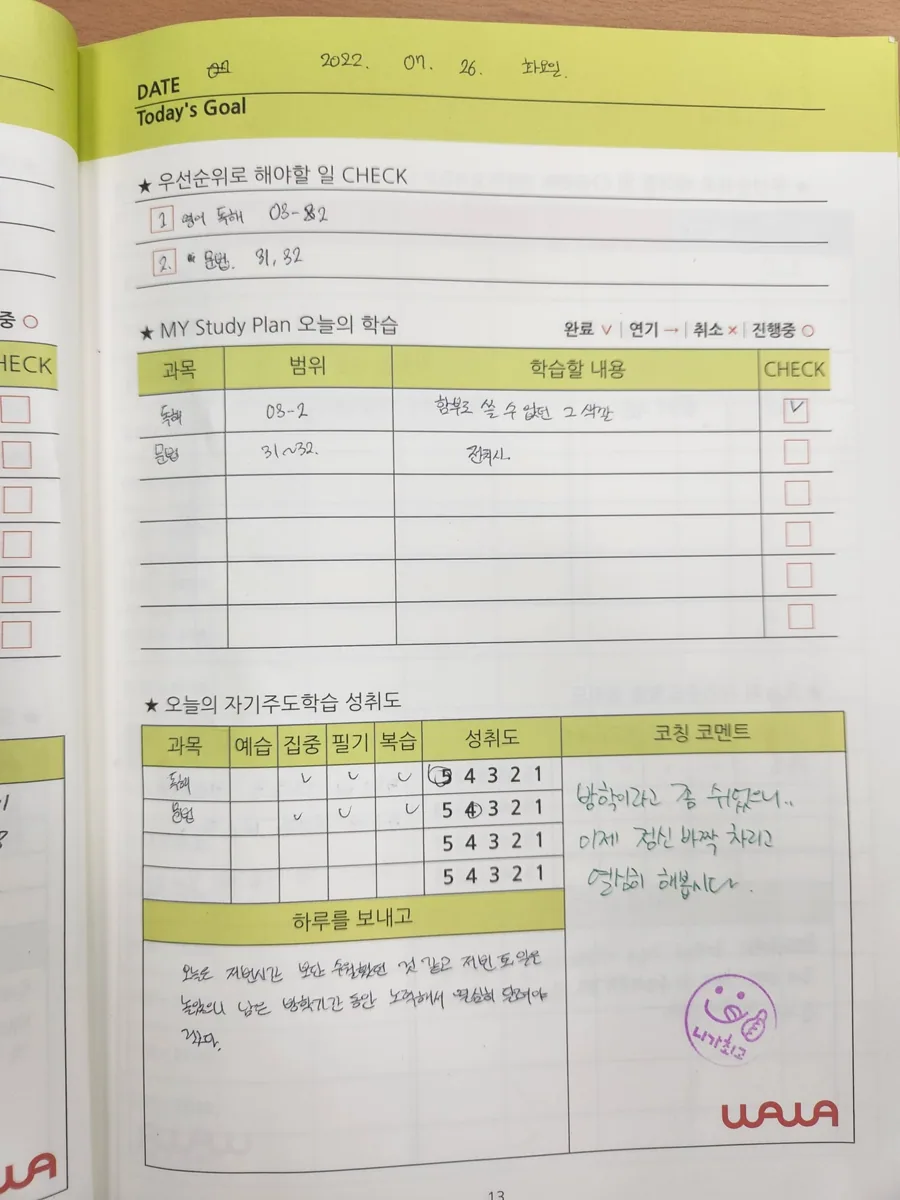 DATE 2022. 07. 26. 화요일.
Today's Goal
★ 우선순위로 해야할 일 CHECK
1 영어 독해 03-2
2. 문법. 31, 32
중 ○
HECK
★ MY Study Plan 오늘의 학습 완료 ∨ | 연기 → | 취소 × | 진행중 ○
과목 범위 학습할 내용 CHECK
독해 03-2 함부로 쓸 수 없던 그 색깔 ✓
문법 31~32. 전치사.
★ 오늘의 자기주도학습 성취도
과목 예습 집중 필기 복습 성취도 코칭 코멘트
독해 ✓ ✓ ✓ 5 4 3 2 1
문법 ✓ ✓ ✓ 5 4 3 2 1
5 4 3 2 1
5 4 3 2 1
방학이라고 좀 쉬었으니..
이제 정신 바짝 차리고
열심히 해봅시다.
하루를 보내고
오늘은 저번시간 보단 수월했던 것 같고 저번
놀았으니 남은 방학기간 동안 노력해서 열심히 달려야
겠다.
니가최고
WAWA
13